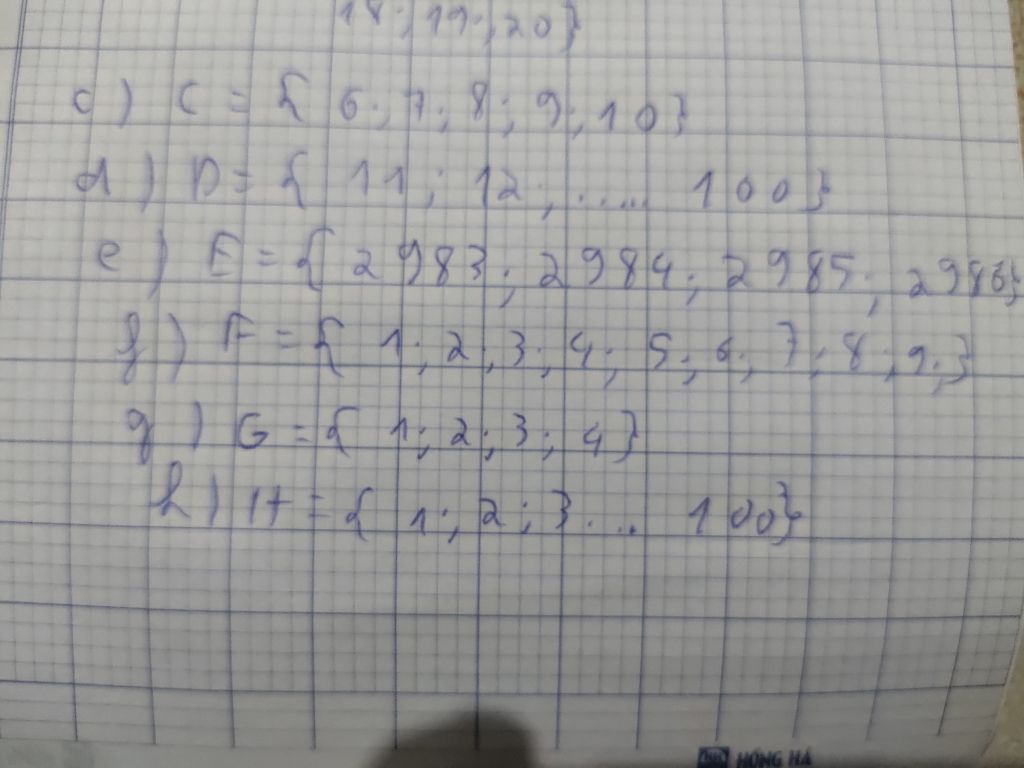 18; 19; 20}
c) C = { 6; 7; 8; 9; 10}
d) D = { 11; 12; ..... 100}
e) E = { 2983; 2984; 2985; 2986}
f) F = { 1; 2; 3; 4; 5; 6; 7; 8; 9;}
g) G = { 1; 2; 3; 4}
h) H = { 1; 2; 3.... 100}
HỒNG HÀ